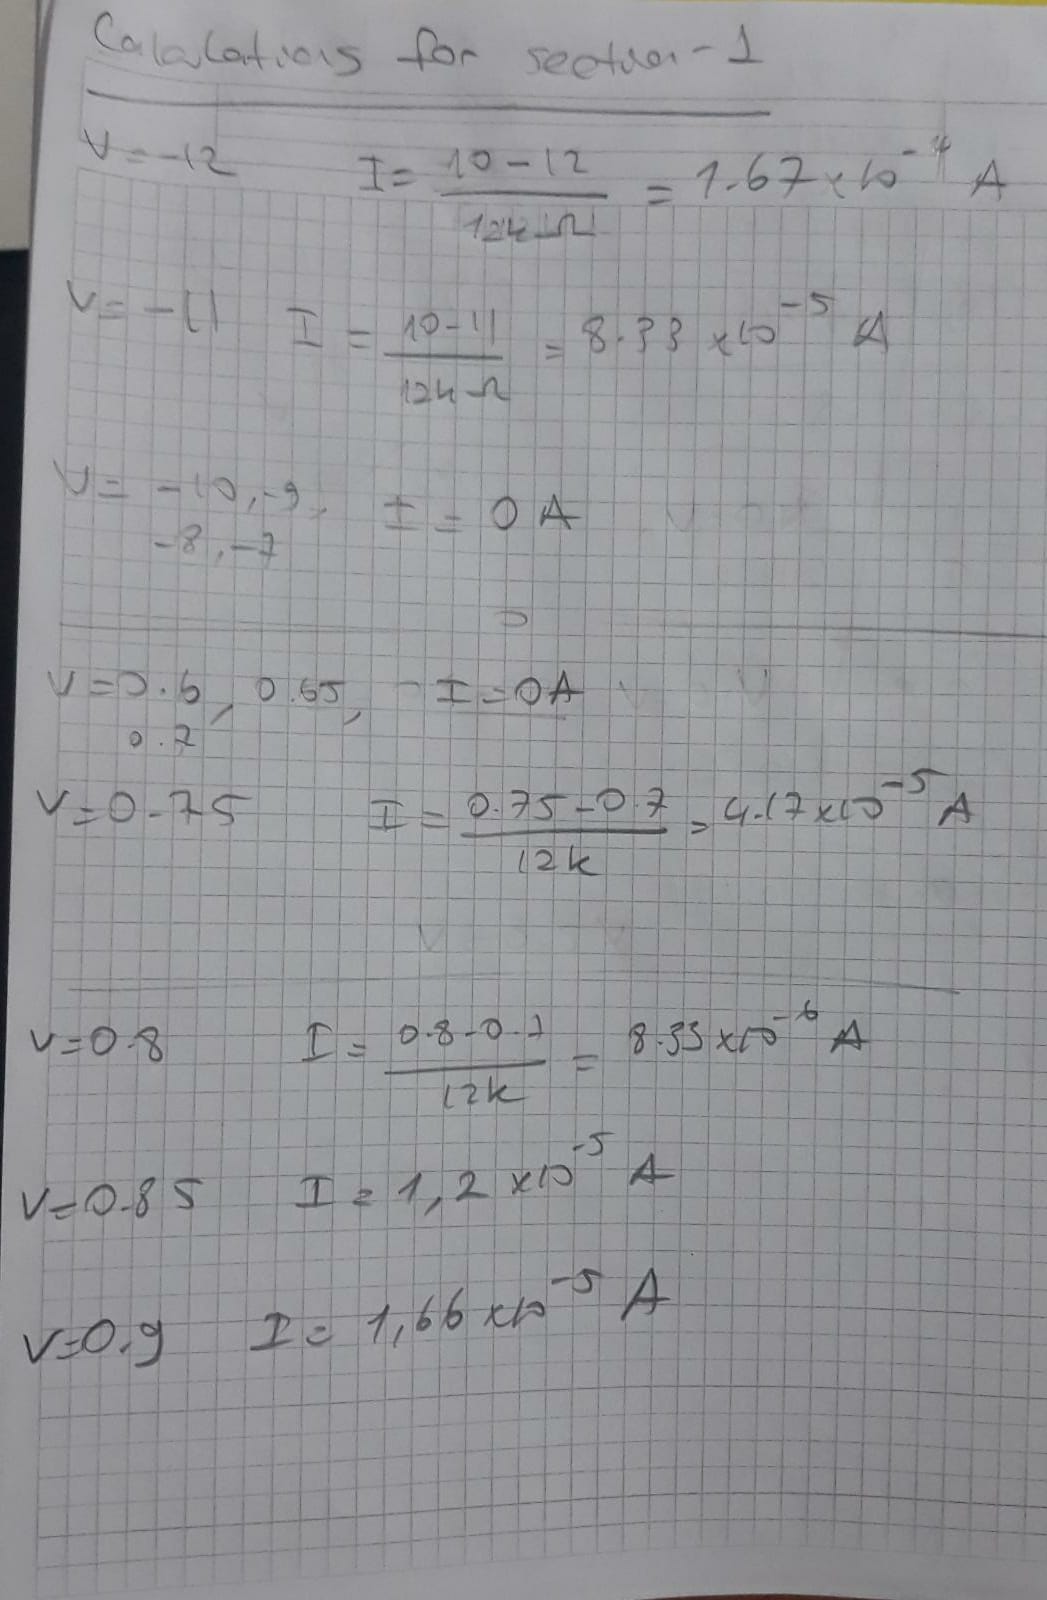 Calculations for section-1
V=-12 I= 10-12 / 12kΩ = 1.67x10^-4 A
V= -11 I = 10-11 / 12kΩ = 8.33 x10^-5 A
V= -10,-9, I = 0 A
-8,-7
V=0.6, 0.65, I=0A
0.7
V=0.75 I = 0.75-0.7 / 12k = 4.17x10^-5 A
V=0.8 I = 0.8-0.7 / 12k = 8.33x10^-6 A
V=0.85 I = 1,2 x10^-5 A
V=0.9 I = 1,66 x10^-5 A